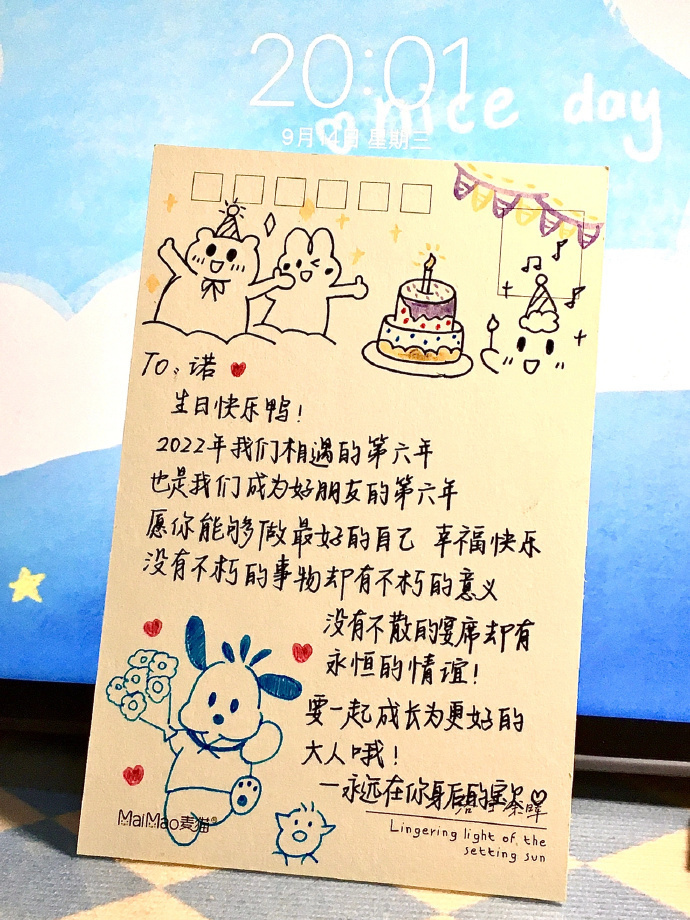 20:01
nice day
9月14日 星期三
TO:诺
生日快乐鸭!
2022年我们相遇的第六年
也是我们成为好朋友的第六年
愿你能够做最好的自己 幸福快乐
没有不朽的事物却有不朽的意义
没有不散的宴席却有
永恒的情谊!
要一起成长为更好的
大人哦!
—永远在你身后的
余晖
MaiMao麦猫®
Lingering light of the
setting sun